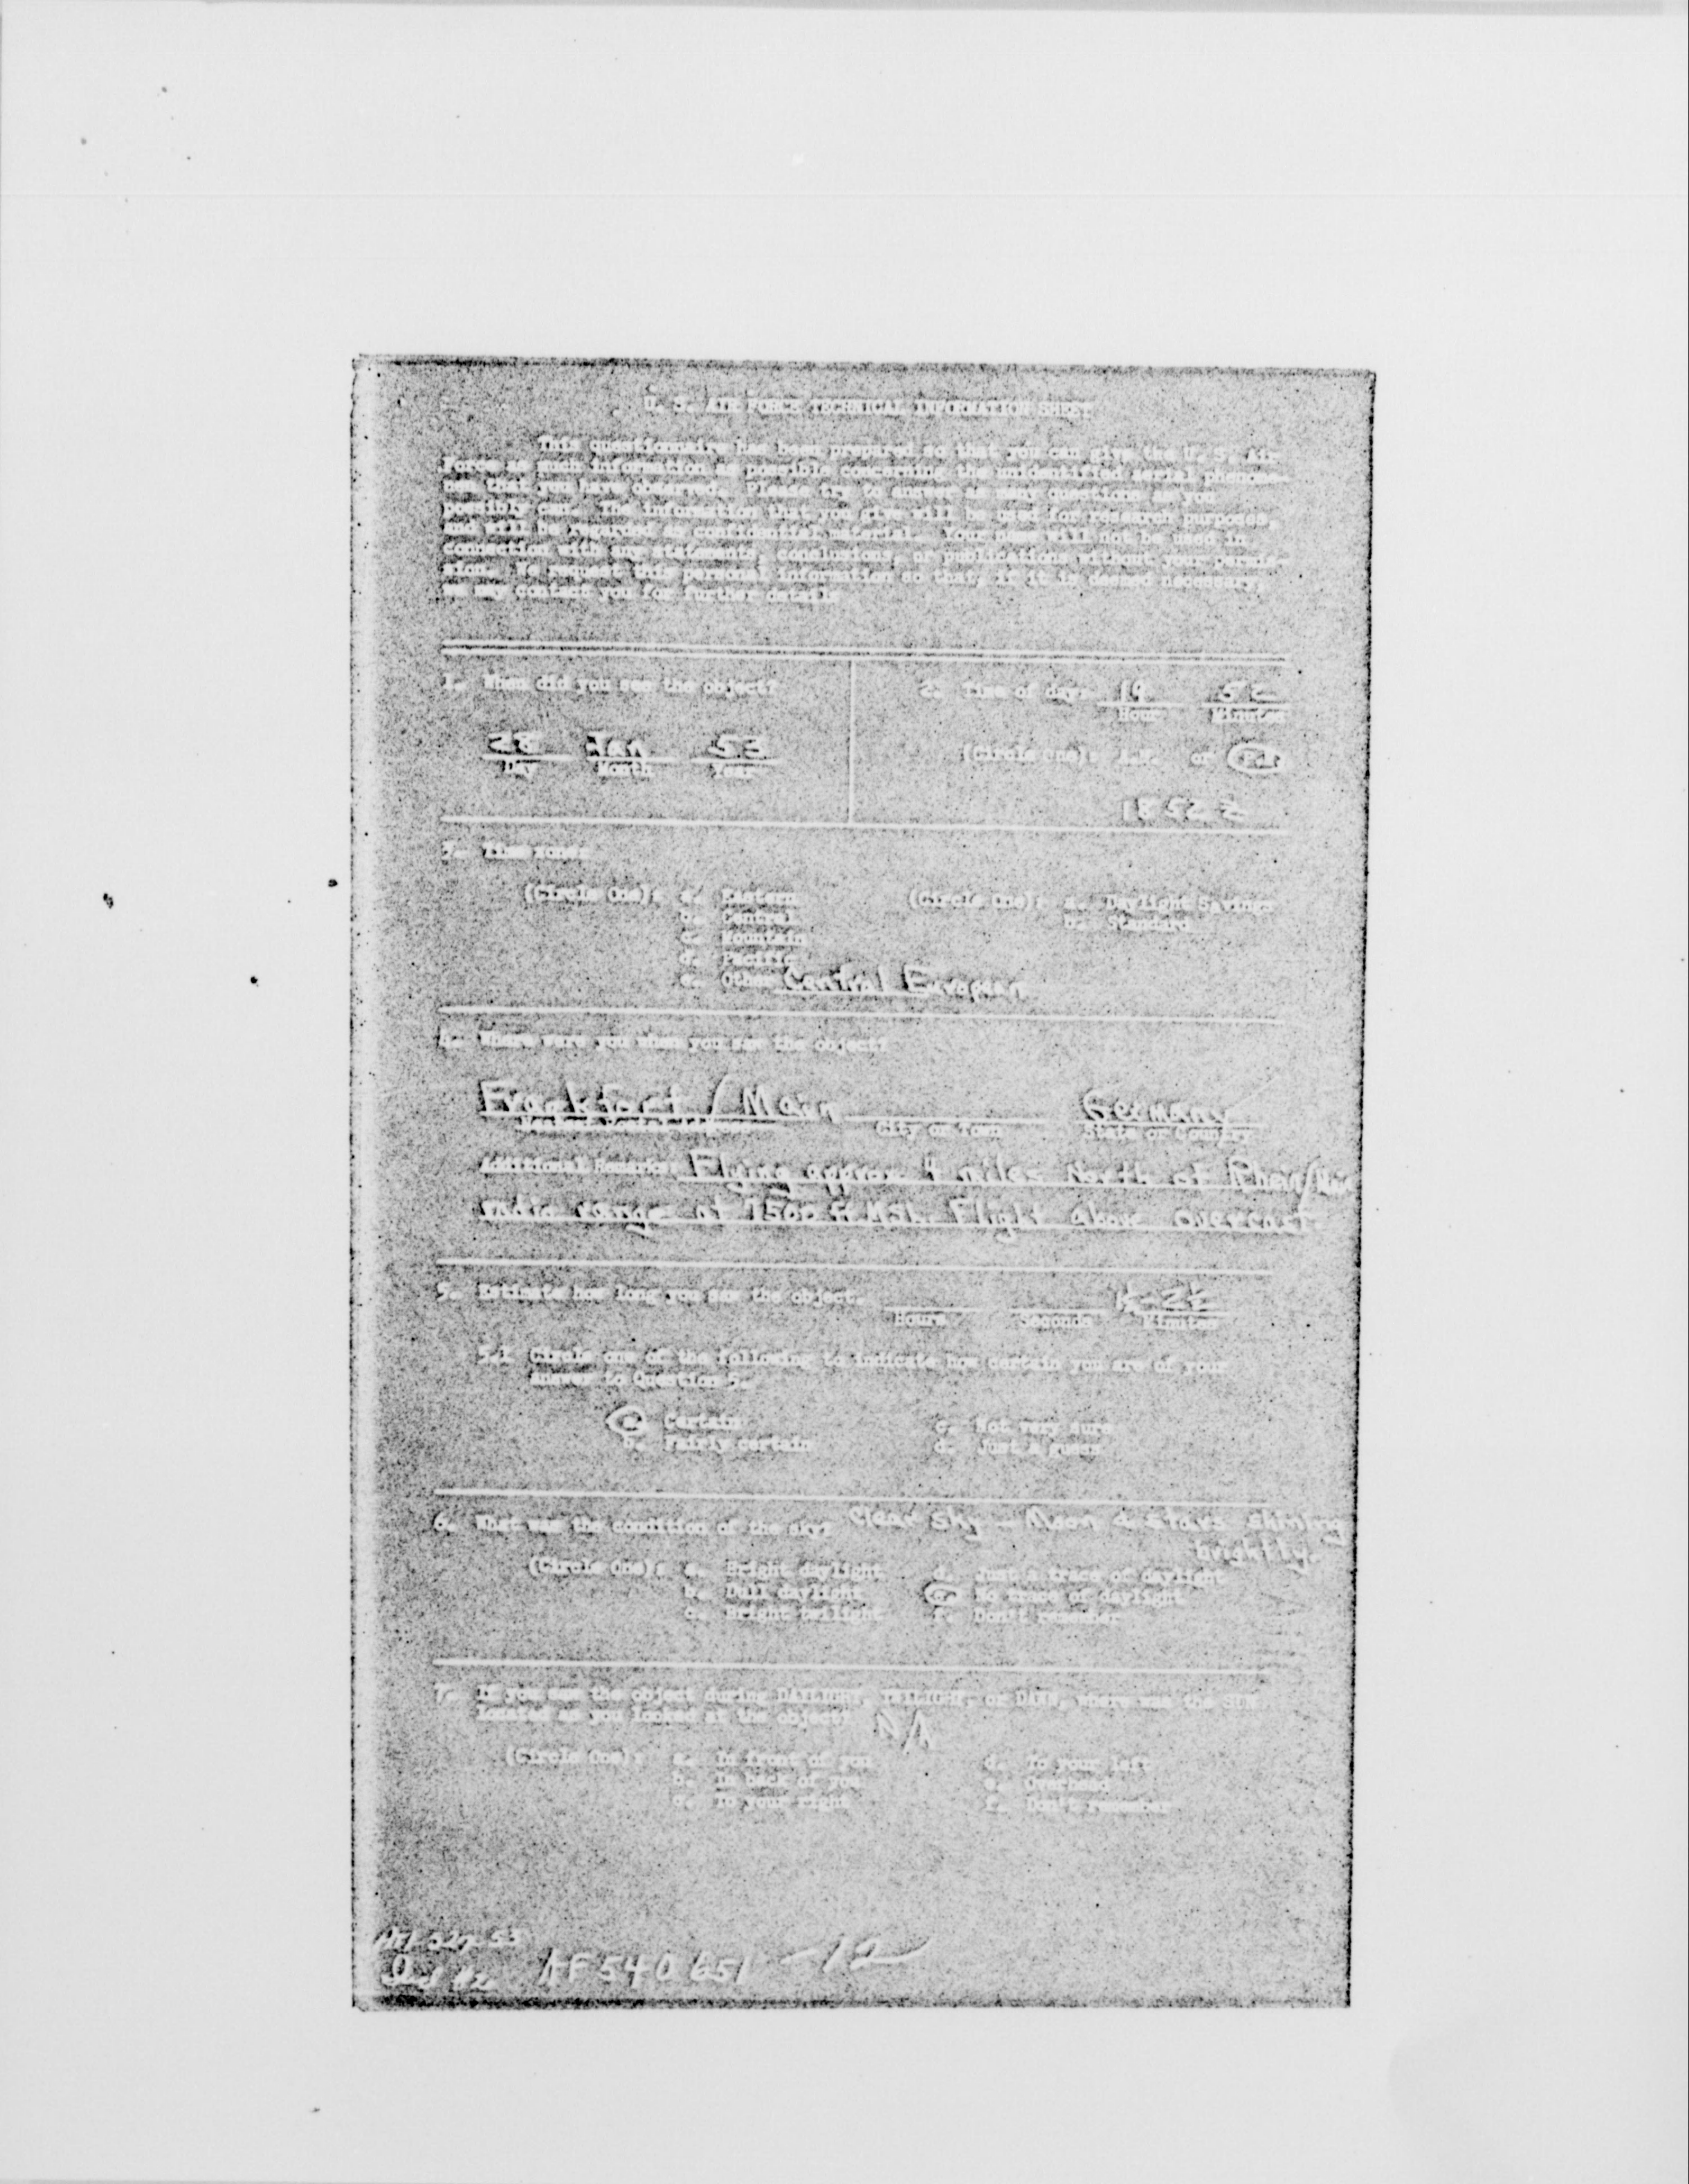 U. S. AIR FORCE TECHNICAL INFORMATION SHEET
This questionnaire has been prepared so that you can give the U. S. Air
Force as much information as possible concerning the unidentified aerial phenome-
non that you have observed. Please try to answer as many questions as you
possibly can. The information that you give will be used for research purposes,
and will be regarded as confidential material. Your name will not be used in
connection with any statements, conclusions, or publications without your permis-
sion. We request this personal information so that, if it is deemed necessary,
we may contact you for further details.
1. When did you see the object?
28 Jan 53
Day Month Year
2. Time of day: 19 52
Hour Minutes
(Circle One): A.M. or P.M.
1852 Z
3. Time zone:
(Circle One): a. Eastern
b. Central
c. Mountain
d. Pacific
e. Other Central European
(Circle One): a. Daylight Savings
b. Standard
4. Where were you when you saw the object?
Frankfort / Main Germany
Nearest Postal Address City or Town State or Country
Additional Remarks: Flying approx 4 miles North of Rhein/Main
radio range at 7500 ft MSL. Flight above overcast.
5. Estimate how long you saw the object.
Hours Seconds Minutes
5.1 Circle one of the following to indicate how certain you are of your
answer to Question 5.
a. Certain c. Not very sure
b. Fairly certain d. Just a guess
6. What was the condition of the sky? Clear sky - Moon & stars shining
brightly.
(Circle One): a. Bright daylight d. Just a trace of daylight
b. Dull daylight e. No trace of daylight
c. Bright twilight f. Don't remember
7. If you saw the object during DAYLIGHT, TWILIGHT, or DAWN, where was the SUN
located as you looked at the object? N/A
(Circle One): a. In front of you d. To your left
b. In back of you e. Overhead
c. To your right f. Don't remember
AF 540651 -12